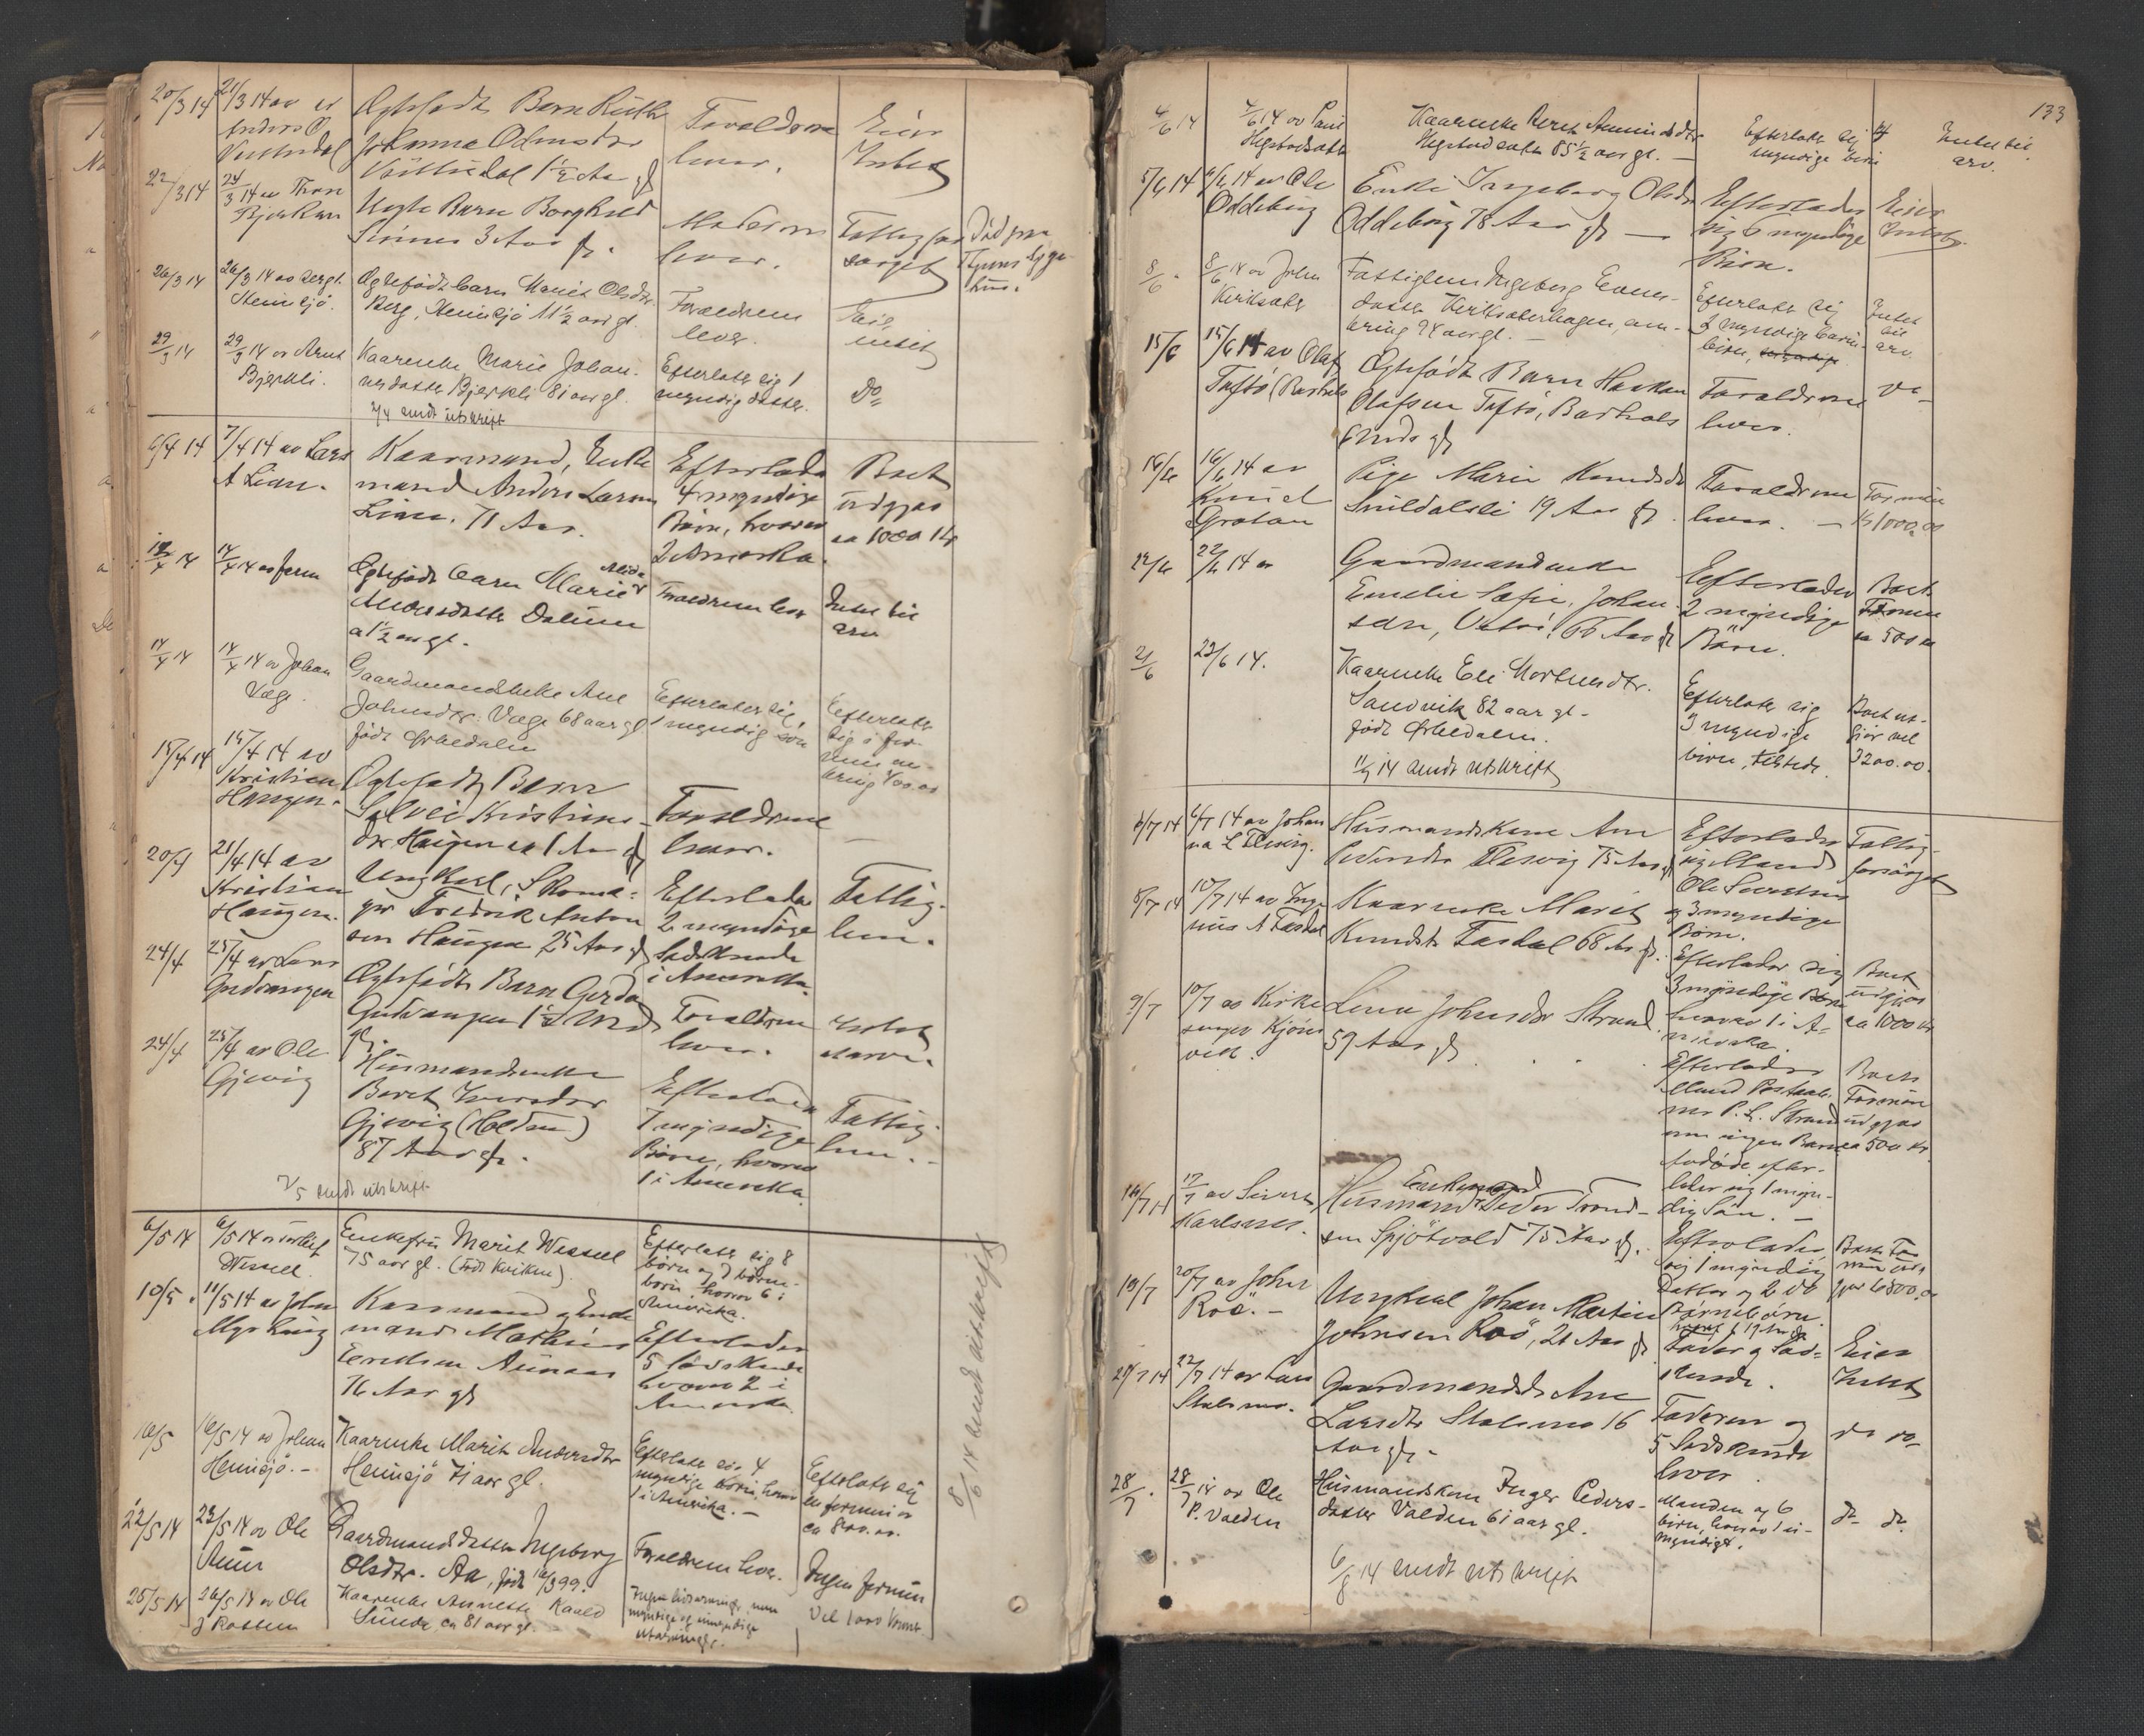 20/3 14
21/3 14 av
Anders O
Vuttudal
Ægtefødt Barn Ruth
Johanne Olmsdtr
1½ Aar gl
Forældrene
lever.
Eier
Intet
22/3 14
24/3 14 av Thore
Bjerkan
Uegte Barn Borghild
3 Aar gl.
Moderen
lever.
Fattig for
sørget
Død paa
Syge-
hus.
26/3 14
26/3 14 av Bergt.
Hemsjø.
Ægtefødt barn Marit Olsdtr.
Berg, Hemsjø 11½ aar gl.
Forældrene
lever.
Eier
intet
29/3 14
29/3 14 av Arnt
Bjerkli.
Kaarenke Marie Johan-
nesdatter Bjerkli 81 aar gl.
Efterlater sig 1
myndig datter.
Do
2/4 sendt utskrift
6/4 14
7/4 14 av Lars
A Lian.
Kaarmand, Enke
mand Anders Larsen
Lian. 71 Aar.
Efterlader
4 myndige
Børn, hvorav
2 Amerika.
Boet
udgjør
ca 1000 Kr
12/4 14
14/4 14 av faren
Ægtefødt barn Marie
Andersdatter Dalum
½ aar gl.
Forældrene lever
Intet til
arv
14/4 14
14/4 14 av Johan
Væge.
Gaardmandsenke Ane
Johnsdtr. Væge 68 aar gl
født Orkedalen
Efterlater sig
1 myndig søn
Efterlater
sig i for-
mue om-
kring 400.00
15/4 14
15/4 14 av
Kristian
Haugen.
Ægtefødt Barn
Solvei Kristians-
dtr Haugen ca 1 Aar gl
Forældrene
lever.
20/4
21/4 14 av
Kristian
Haugen.
Ungkarl, Skoma-
ger Fredrik Anton
sen Haugen 25 Aar gl
Efterlader
2 myndige
Sødskende
i Amerika.
Fattig-
lem.
24/4
25/4 av Lars
Gudvangen
Ægtefødt Barn Gerda
Gudvangen 1½ Md
gl.
Forældrene
lever.
Intet
at arve.
24/4
25/4 av Ole
Gjevig
Husmandsenke
Beret Iversdtr
Gjevig (Holden)
87 Aar gl.
Efterlader
7 myndige
Børn, hvorav
1 i Amerika
Fattig-
lem.
2/5 sendt utskrift
6/5 14
6/5 14 av
Wessel.
Enkefru Marit Wessel
75 aar gl. (født Kvikne).
Efterlater sig 8
børn og 7 børne-
børn, hvorav 6 i
Amerika.
10/5.
11/5 14 av John
Myrhaug
Kaarmand og Enke
mand Mathias
Eriksen Aunan
76 Aar gl
Efterlader
5 Sødskende
hvorav 2 i
Amerika.
16/5
16/5 14 av Johan
Hemsjø.
Kaarenke Marit Andersdtr
Hemsjø 71 aar gl.
Efterlater sig 4
myndige børn, hvorav
1 i Amerika.
Efterlater sig
en formue av
ca 800.00.
22/5 14
23/5 14 av Ole
Aune
Gaardmandsdatter Ingeborg
Olsdtr. Aa, født 16/3 99.
Forældrene lever.
Ingen formue
25/5 14
26/5 14 av Ole
J Rostum
Kaarenke Annette Kaald
Sunde ca 81 aar gl.
Ingen livsarvinger, men
myndige og umyndige
utarvinger.
Vel 1000 kroner
8/6 14 sendt utskrift
133
4/6 14
4/6 14 av Paul
Hegstadsæter
Kaarenke Beret Amundsdtr
Hegstadsæter 85½ aar gl.
Efterlater sig 4
myndige børn
Intet til
arv.
5/6 14
6/6 14 av Ole
Oddeborg
Enke Ingeborg Olsdtr
Oddeborg 78 Aar gl
Efterlader
sig 6 myndige
Børn.
Eier
Intet.
8/6.
8/6 14 av John
Kirksæter
Fattiglem Ingeborg Evens-
datter Kirksæterhagen, om-
kring 74 aar gl.
Efterlater sig
2 myndige barne-
børn,
Intet
til
arv.
15/6
15/6 14 av Olaf
Tuftø, Barhals
Ægtefødt Barn Haakon
Olafsen Tuftø, Barhals
6 Mdr gl
Forældrene
lever.
Do
16/6
16/6 14 av
Knud
Grotan
Pige Marie Knudsdtr
Snildalsli 19 Aar gl.
Forældrene
lever.
Formue
Kr 1000,00
22/6
22/6 14 av
Gaardmandsenke
Emelie Sofie Johan-
sen, 66 Aar gl
Efterlader
2 myndige
Børn.
Boets
Formue
ca 500 kr
21/6
23/6 14.
Kaarenke Eli Mortensdtr.
Sandvik 82 aar gl.
født Orkedalen.
Efterlater sig
3 myndige
børn, tilstede.
Boet ut-
gjør vel
3200.00.
11/7 14 sendt utskrift
6/7 14
6/7 14 av Johan
na L Flesvig.
Husmandskone Ane
Pedersdtr Flesvig 75 Aar gl
Efterlader
sig Mand
Ole Sivertsen
og 3 myndige
Børn.
Fattig-
forsørget
8/7 14
10/7 14 av Inge
nius A Fasdal
Kaarenke Marit
Knudsdtr Fasdal 68 Aar gl.
Efterlader sig
3 myndige Børn
hvorav 1 i A-
merika.
Boet
udgjør
ca 1000 Kr
9/7
10/7 av Kirke
sanger Kjøns
vik.
Lina Johnsdtr Strand
59 Aar gl
Efterlader
Mand Postaab-
ner P. L. Strand
men ingen Barn
fødøde, efter-
lader sig 1 myn-
dig Søn.
Boets
Formue
udgjør
ca 500 Kr.
16/7 14
17/7 av Sivert
Karlsen.
Enkemand
Husmand Peder Trond-
sen Spjøtvold 75 Aar gl.
Efterlader
sig 1 myndig
Datter og 2
Børnebørn.
Boets For
mue ud
gjør 6800,00
19/7
20/7 av John
Roø.
Ungkarl Johan Martin
Johnsen Roø, 21 Aar gl
Fader og Sød-
skende.
Eier
Intet
21/7 14
22/7 14 av Lars
Stalsmo.
Gaardmandsdtr Ane
Larsdtr Stalsmo 16
Aar gl.
Faderen og
5 Sødskende
lever
do do
28/7.
28/7 14 av Ole
P. Valden
Husmandskone Inger Peders-
datter Valden 61 aar gl.
Manden og 6
børn, hvorav 1 u-
myndigt.
do do.
6/8 14 sendt utskrift